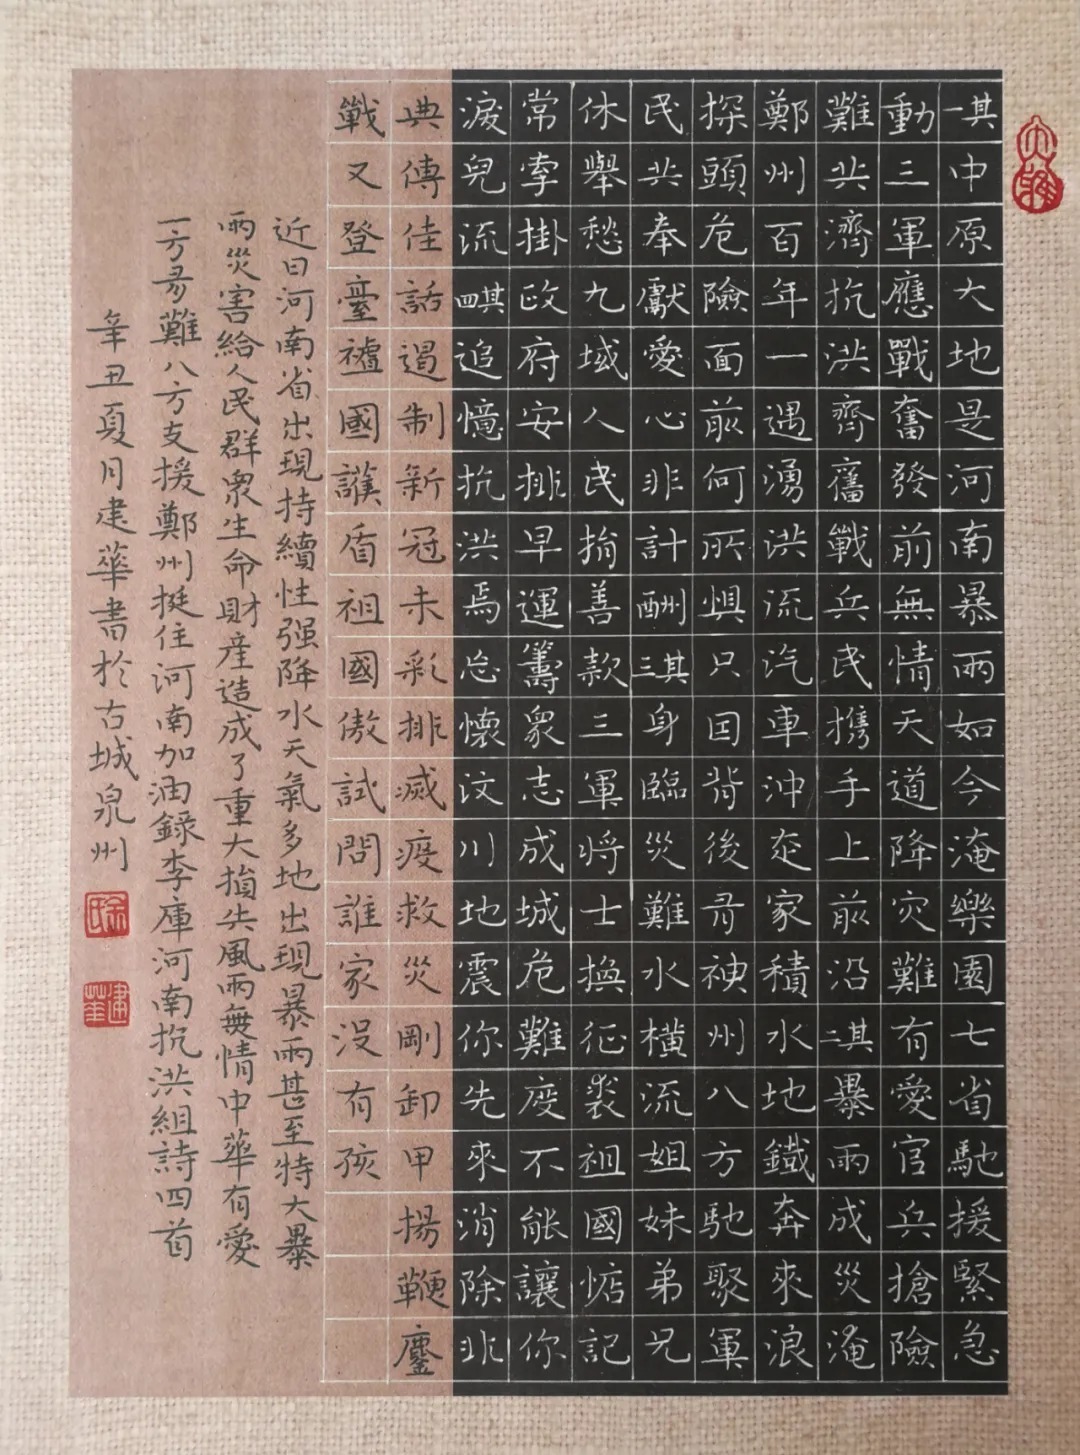 大雅
其一中原大地是河南暴雨如今淹樂園七省馳援緊急
動三軍應戰奮發前無情天道降灾難有愛官兵搶險
難共濟抗洪齊奮戰兵民攜手上前沿其二暴雨成災淹
鄭州百年一遇湧洪流汽車沖走家積水地鐵奔來浪
探頭危險面前何所懼只因背後有神州八方馳聚軍
民共奉獻愛心非計酬其三身臨災難水橫流姐妹弟兄
休舉愁九域人民捐善款三軍將士換征裘祖國惦記
常牽掛政府安排早運籌眾志成城危難度不能讓你
淚兒流其四追憶抗洪焉忘懷汶川地震你先來消除非
典傳佳話遏制新冠未彩排滅疫救災剛卸甲揚鞭鏖
戰又登臺國盾祖國傲試問誰家沒有孩
近日河南省出現持續性强降水天氣多地出現暴雨甚至特大暴
雨災害給人民群眾生命財産造成了重大損失風雨無情中華有愛
一方有難八方支援鄭州挺住河南加油錄李庫河南抗洪組詩四首
辛丑夏月建華書於古城泉州
徐氏
建華